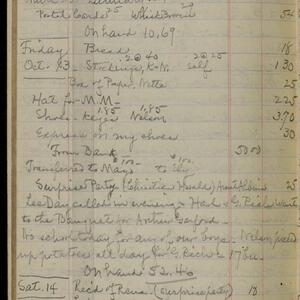 Postal Cards 25 Whisk Broom 29 54
On hand 10.69
Friday Bread 18
Oct. 13 - Stockings, K+N. 2@40 self 2@25 1 30
Box of Paper, Netta 25
Hat for M.M. 2 25
Shoes - Keyes 1.85 Nelson 1.85 3.70
Express on my shoes 30
From Bank 50 00
Transferred to Mary to
Surprise Party (Christian Herald) Aunt 25
Lee Day called in evening - Harl + G. Rich went
to the Banquet for Arthur
No school today for any of our boys. Nelson
up potatoes all day for G. Rich 17 bu.
On hand 52.46
Sat. 14 Rec'd of Rena (surprise party) 18